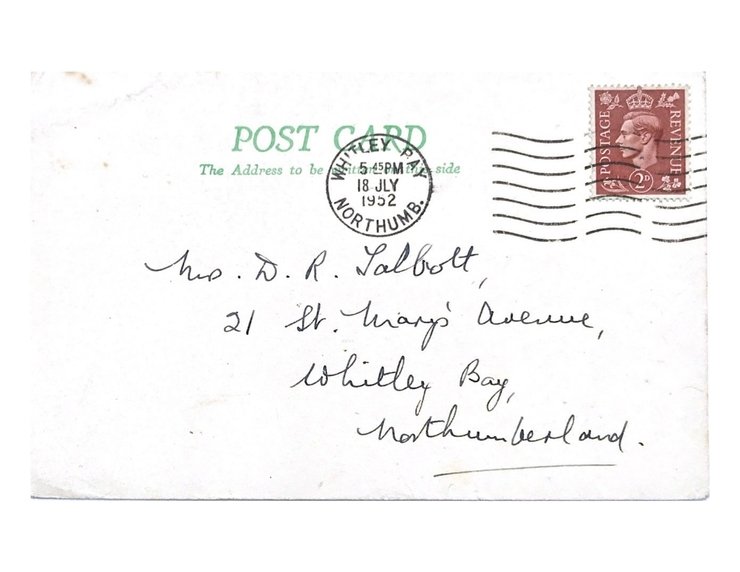 POST CARD
The Address to be written on this side
WHITLEY BAY
5 45PM
18 JLY
1952
NORTHUMB.
POSTAGE
REVENUE
2D
Mrs. D. R. Talbott,
21 St. Mary's Avenue,
Whitley Bay,
Northumberland.